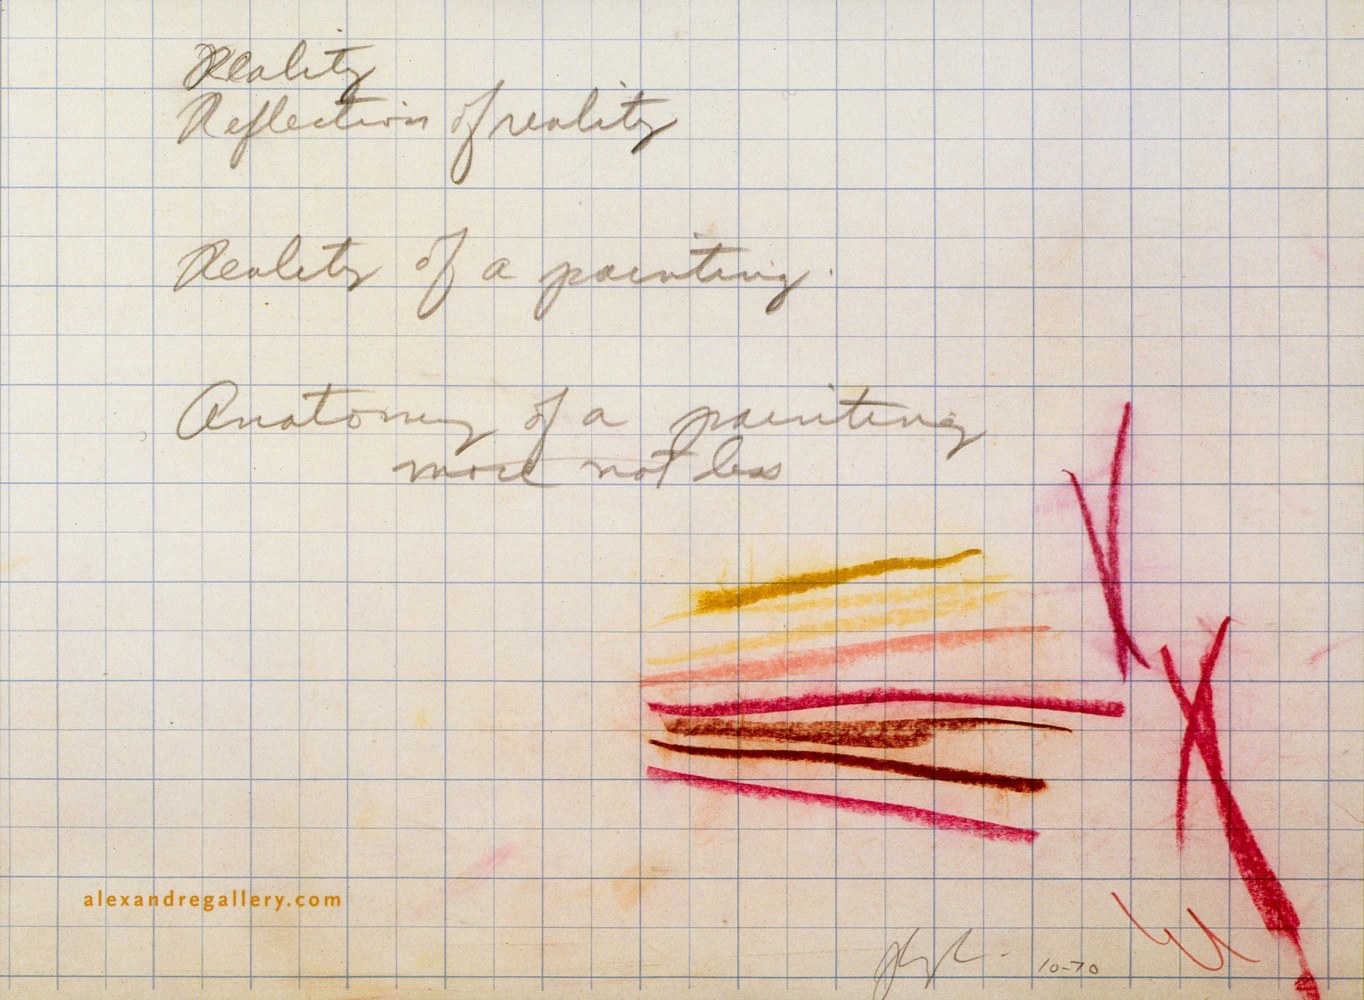 Reality
Reflection of reality
Reality of a painting.
Anatomy of a painting
more not less
alexandregallery.com
10-70